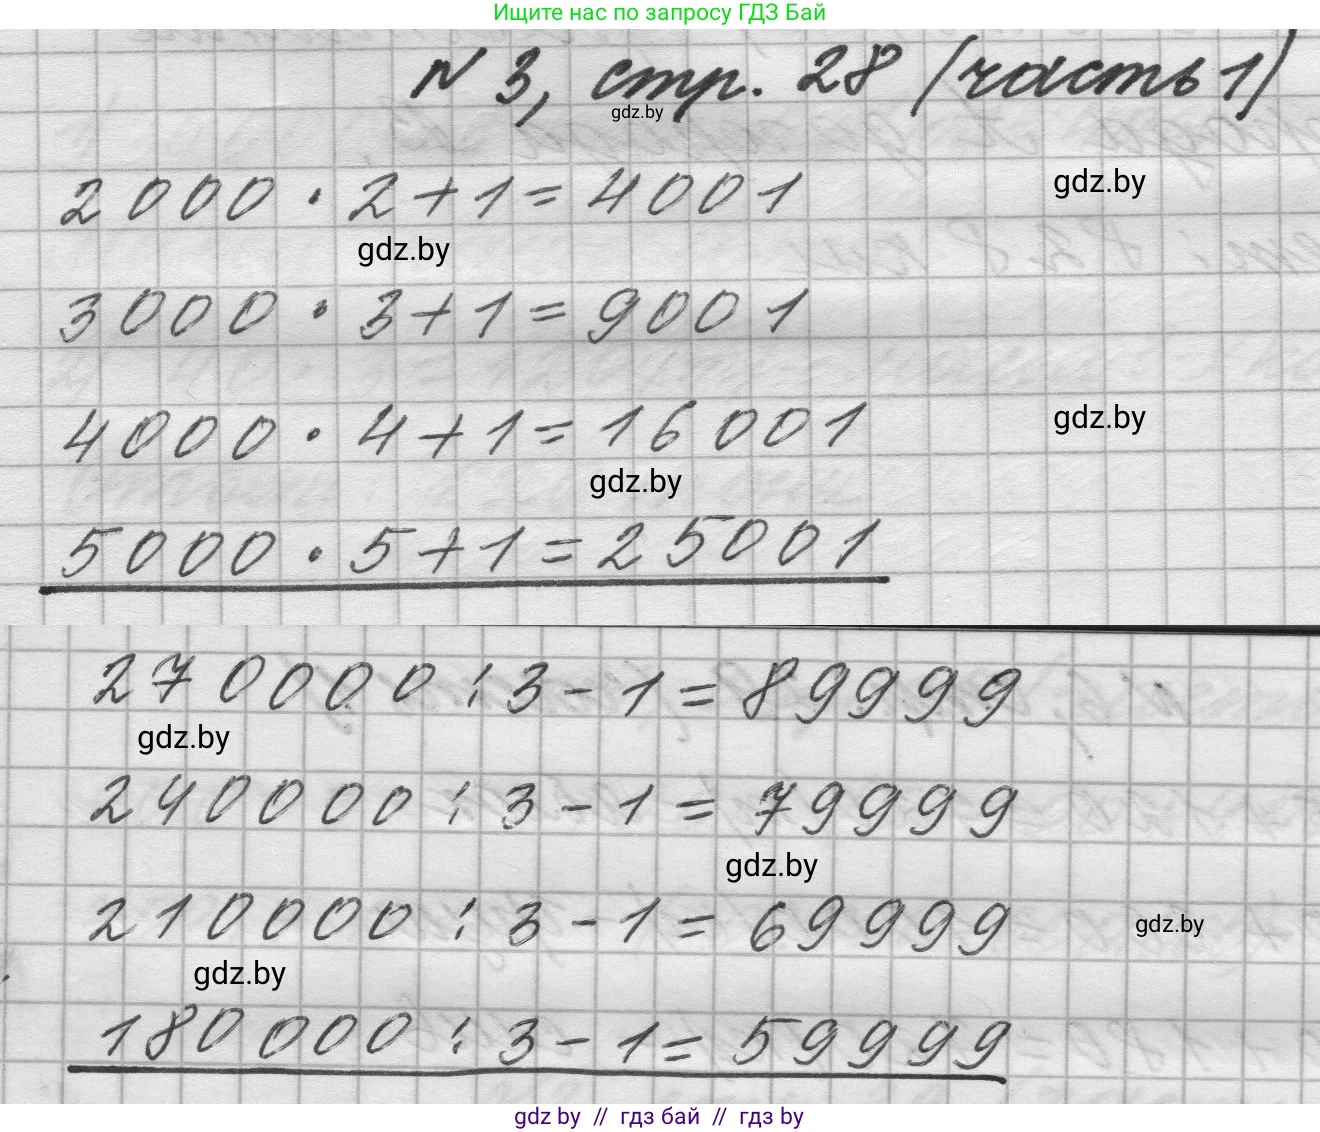 Ищите нас по запросу ГДЗ Бай
N 3, стр. 28 (часть 1)
gdz.by
2000 · 2 + 1 = 4001
gdz.by
gdz.by
3000 · 3 + 1 = 9001
4000 · 4 + 1 = 16001
gdz.by
gdz.by
5000 · 5 + 1 = 25001
270000 : 3 - 1 = 89999
gdz.by
240000 : 3 - 1 = 79999
gdz.by
210000 : 3 - 1 = 69999
gdz.by
gdz.by
180000 : 3 - 1 = 59999
gdz by // гдз бай // gdz by